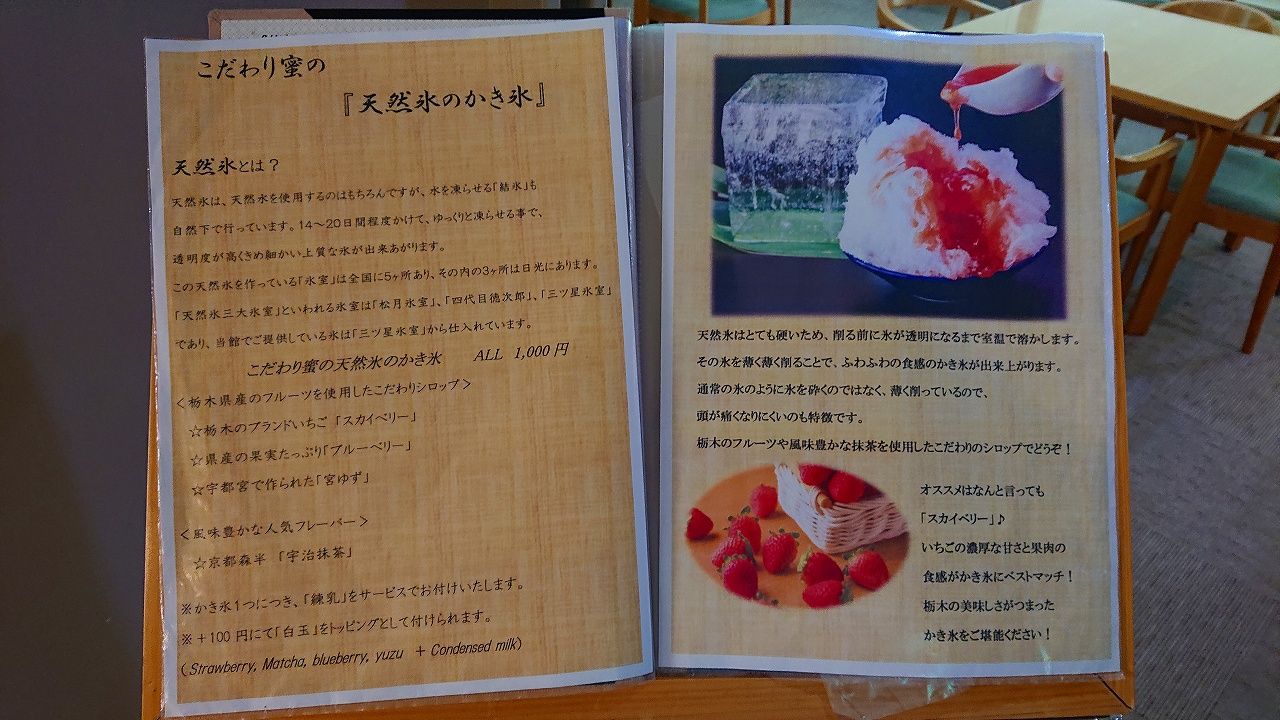 こだわり蜜の
『天然氷のかき氷』
天然氷とは？
天然氷は、天然水を使用するのはもちろんですが、水を凍らせる「結氷」も
自然下で行っています。14～20日間程度かけて、ゆっくりと凍らせる事で、
透明度が高くきめ細かい上質な氷が出来あがります。
この天然氷を作っている「氷室」は全国に5ヶ所あり、その内の3ヶ所は日光にあります。
「天然氷三大氷室」といわれる氷室は「松月氷室」、「四代目徳次郎」、「三ツ星氷室」
であり、当館でご提供している氷は「三ツ星氷室」から仕入れています。
こだわり蜜の天然氷のかき氷 ALL 1,000円
＜栃木県産のフルーツを使用したこだわりシロップ＞
☆栃木のブランドいちご「スカイベリー」
☆県産の果実たっぷり「ブルーベリー」
☆宇都宮で作られた「宮ゆず」
＜風味豊かな人気フレーバー＞
☆京都森半 「宇治抹茶」
※かき氷1つにつき、「練乳」をサービスでお付けいたします。
※＋100円にて「白玉」をトッピングとして付けられます。
(Strawberry, Matcha, blueberry, yuzu ＋ Condensed milk)
天然氷はとても硬いため、削る前に氷が透明になるまで室温で溶かします。
その氷を薄く薄く削ることで、ふわふわの食感のかき氷が出来上がります。
通常の氷のように氷を砕くのではなく、薄く削っているので、
頭が痛くなりにくいのも特徴です。
栃木のフルーツや風味豊かな抹茶を使用したこだわりのシロップでどうぞ！
オススメはなんと言っても
「スカイベリー」♪
いちごの濃厚な甘さと果肉の
食感がかき氷にベストマッチ！
栃木の美味しさがつまった
かき氷をご堪能ください！